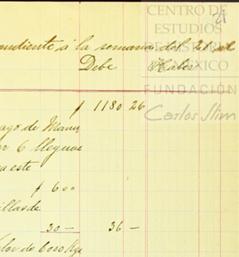 CENTRO DE
ESTUDIOS
DE HISTORIA
DE MÉXICO
FUNDACIÓN
Carlos Slim
21
pondiente á la semana del 21 al
Debe Haber
$ 1180 26
ago de
6 llegue
a este
$ 600
illas de
30 — 36 —
lor de